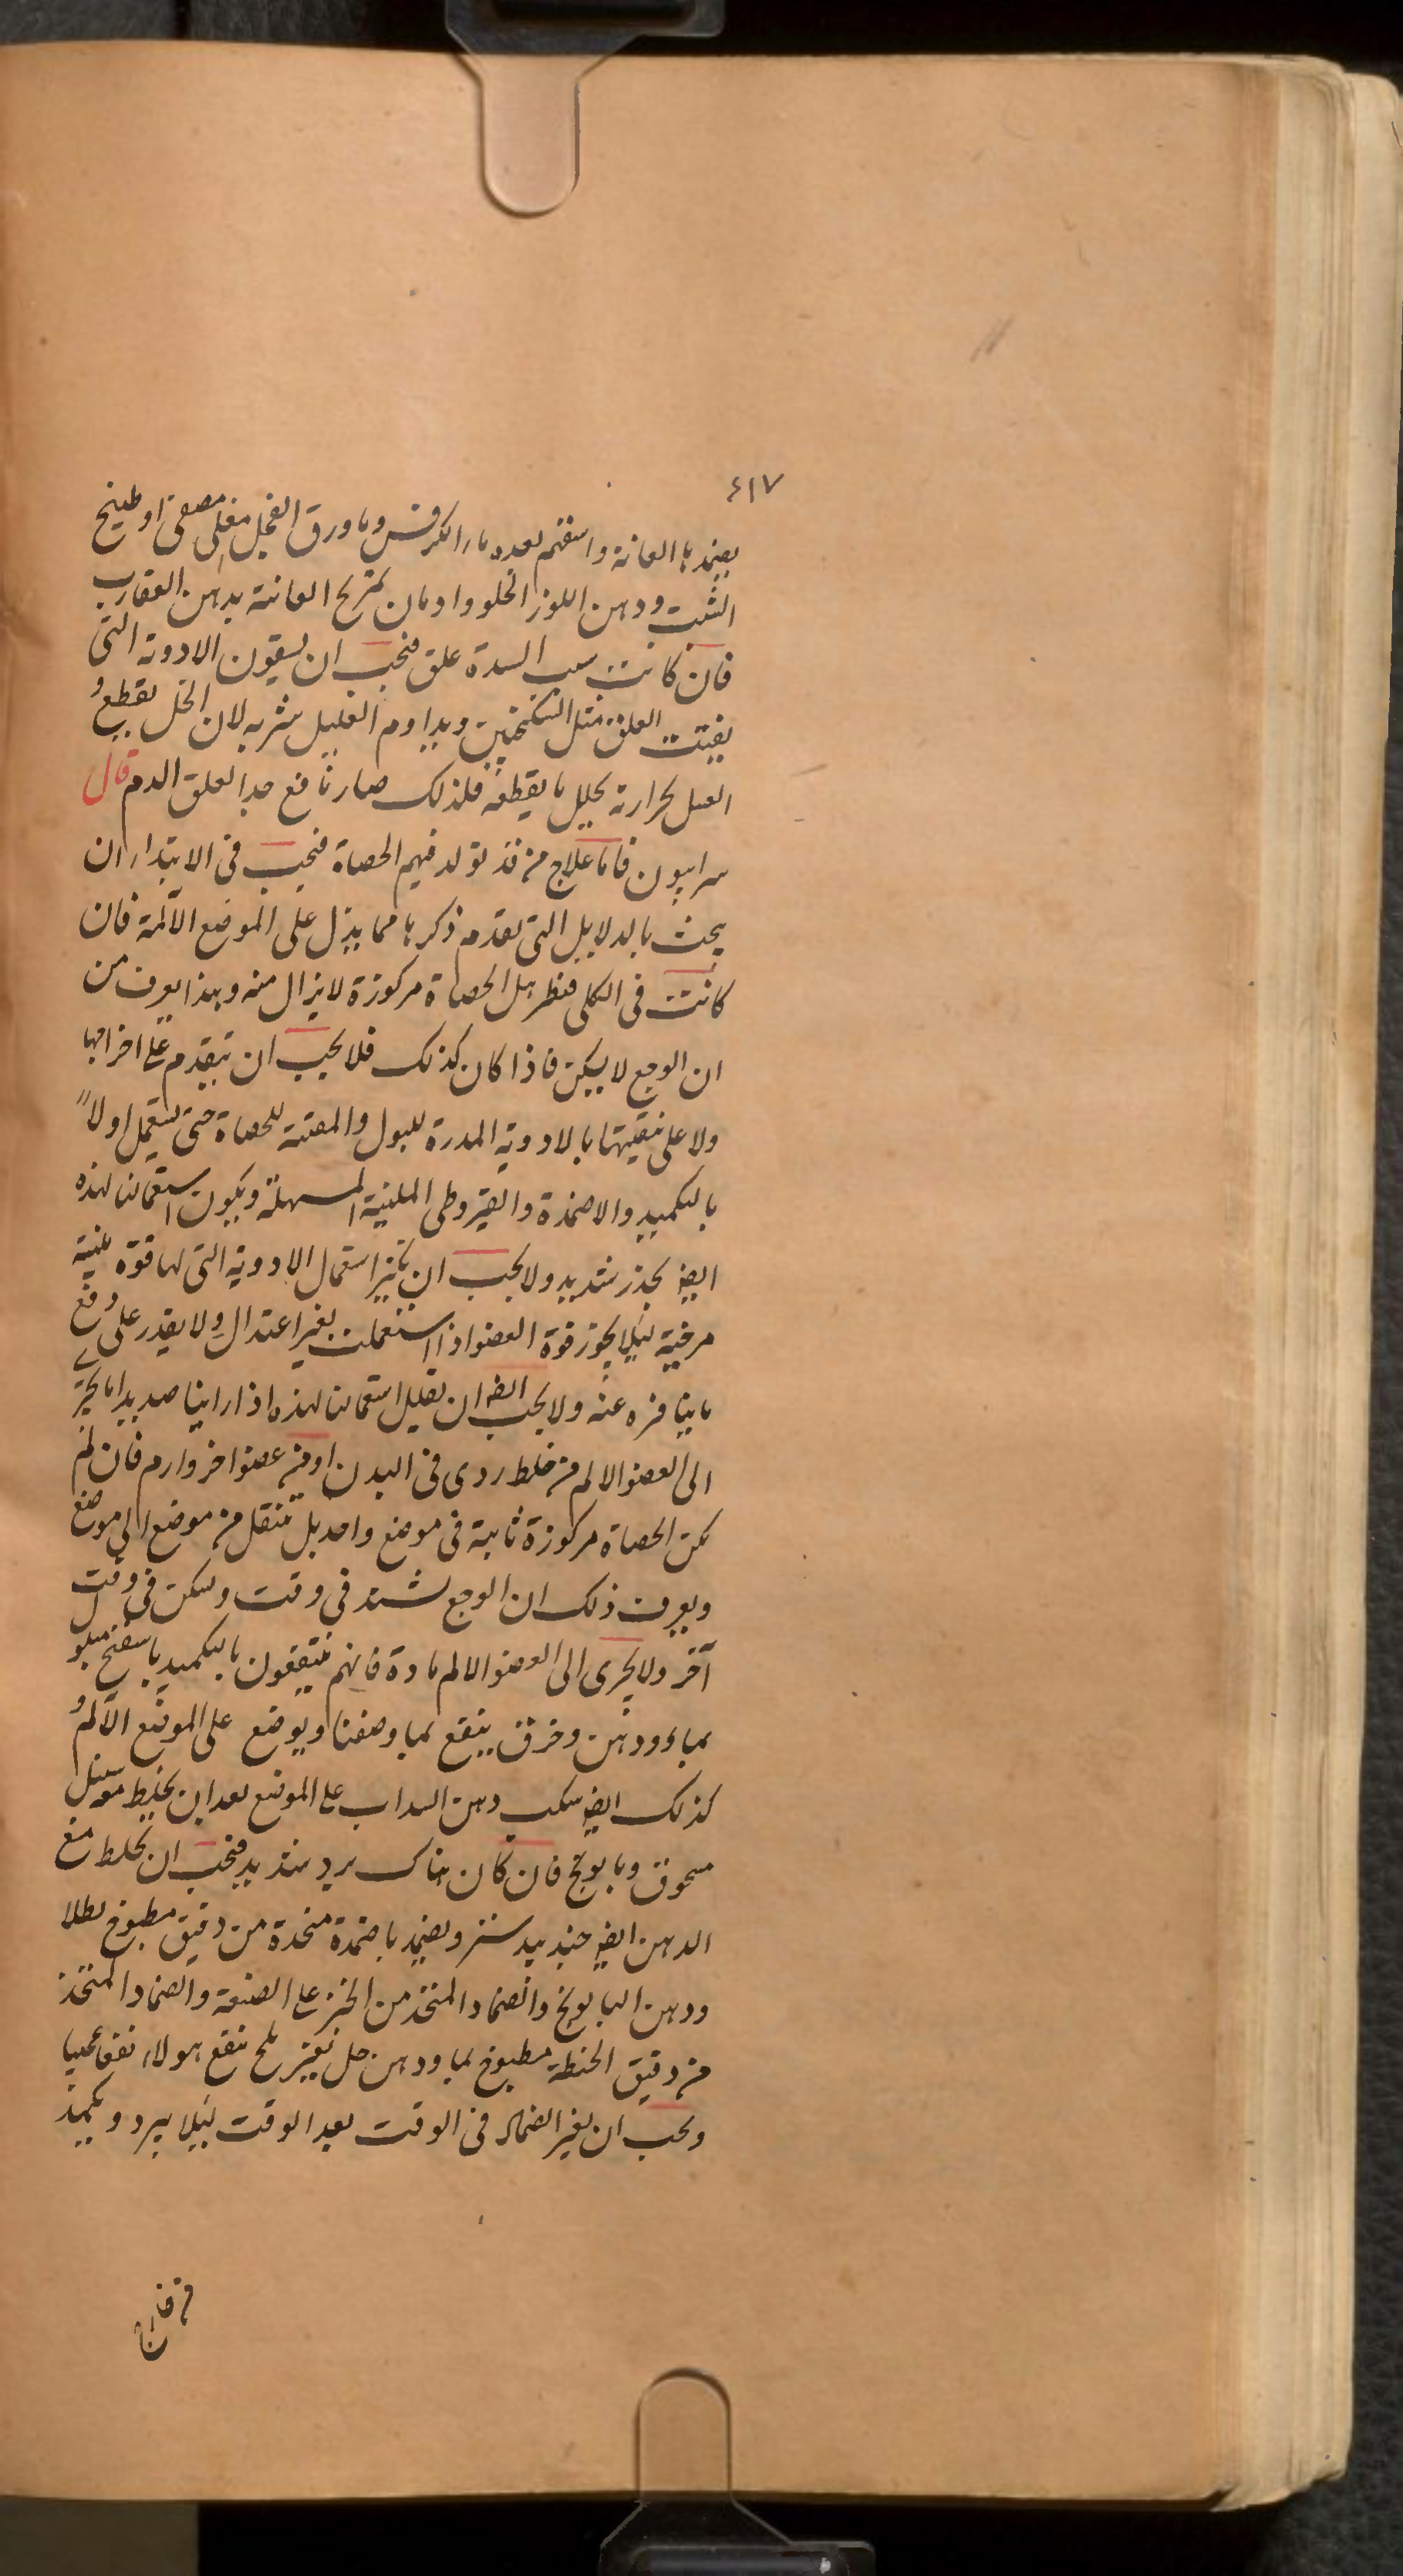 ٤١٧
يضمد بها العانة واسقهم بعده ماء الكرفس وماء ورق الفجل مغلى مصفى او طبيخ
الشبت ودهن اللوز الحلو وادمان تمريخ العانة بدهن العقارب
فان كانت سبب السدة علق فيجب ان يسقون الادوية التى
يفتت العلق مثل السكنجبين ويداوم العليل شربه لان الخل يقطع و
العسل بحرارته يحلل ما يقطعه فلذلك صار نافع جدا لعلق الدم قال
سرابيون فاما علاج من قد تولد فيهم الحصاة فيجب فى الابتداء ان
يبحث بالدلايل التى تقدم ذكرها مما يدل على الموضع الآلمة فان
كانت فى الكلى فنظر هل الحصاة مركوزة لا يزال منه وبهذا يعرف من
ان الوجع لا يسكن فاذا كان كذلك فلا يجب ان تتقدم على اخراجها
ولا على تنقيتها بالادوية المدرة للبول والمفتتة للحصاة حتى يستعمل اولاً
بالتكميد والاضمدة والقيروطى الملينة المسهلة ويكون استعمالنا لهذه
ايضا بحذر شديد ولا يجب ان يكثر استعمال الادوية التى لها قوة ملينة
مرخية ليلا يخور قوة العضو اذا استعملت بغير اعتدال ولا يقدر على دفع
ما ينافره عنه ولا يجب ايضا ان نقلل استعمالنا لهذه اذا راينا صديدا ما يجرى
الى العضو الالم من خلط ردى فى البدن او من عضو اخر وارم فان لم
تكن الحصاة مركوزة ثابتة فى موضع واحد بل تنتقل من موضع الى موضع
ويعرف ذلك ان الوجع يشتد فى وقت ويسكن فى وقت
آخر ولا يجرى الى العضو الالم مادة فانهم ينتفعون بالتكميد باسفنج مبلول
بماء ودهن وخرق ينقع بما وصفنا ويوضع على الموضع الآلم و
كذلك ايضا سكب دهن السداب على الموضع بعد ان يخلط معه سنبل
مسحوق وبابونج فان كان هناك برد شديد فيجب ان يخلط مع
الدهن ايضا جندبيدستر ويضمد باضمدة متخذة من دقيق مطبوخ بطلا
ودهن البابونج والضماد المتخذ من الخبز على الصنعة والضماد المتخذ
من دقيق الحنطة مطبوخ بماء ودهن حل بغير ملح ينفع هولاء نفعا عجيبا
ويجب ان يغير الضماد فى الوقت بعد الوقت ليلا يبرد ويكمد